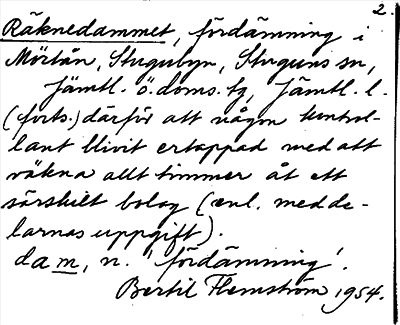 2.
Räknedammet, fördämning i
Mörtån, Stugubyn, Stuguns sn,
Jämtl. ö. doms. tg, Jämtl. l.
(forts.) därför att någon kontrol-
lant blivit ertappad med att
räkna allt timmer åt ett
särskilt bolag (enl. medde-
larnas uppgift).
dam, n. 'fördämning'.
Bertil Flemström 1954.